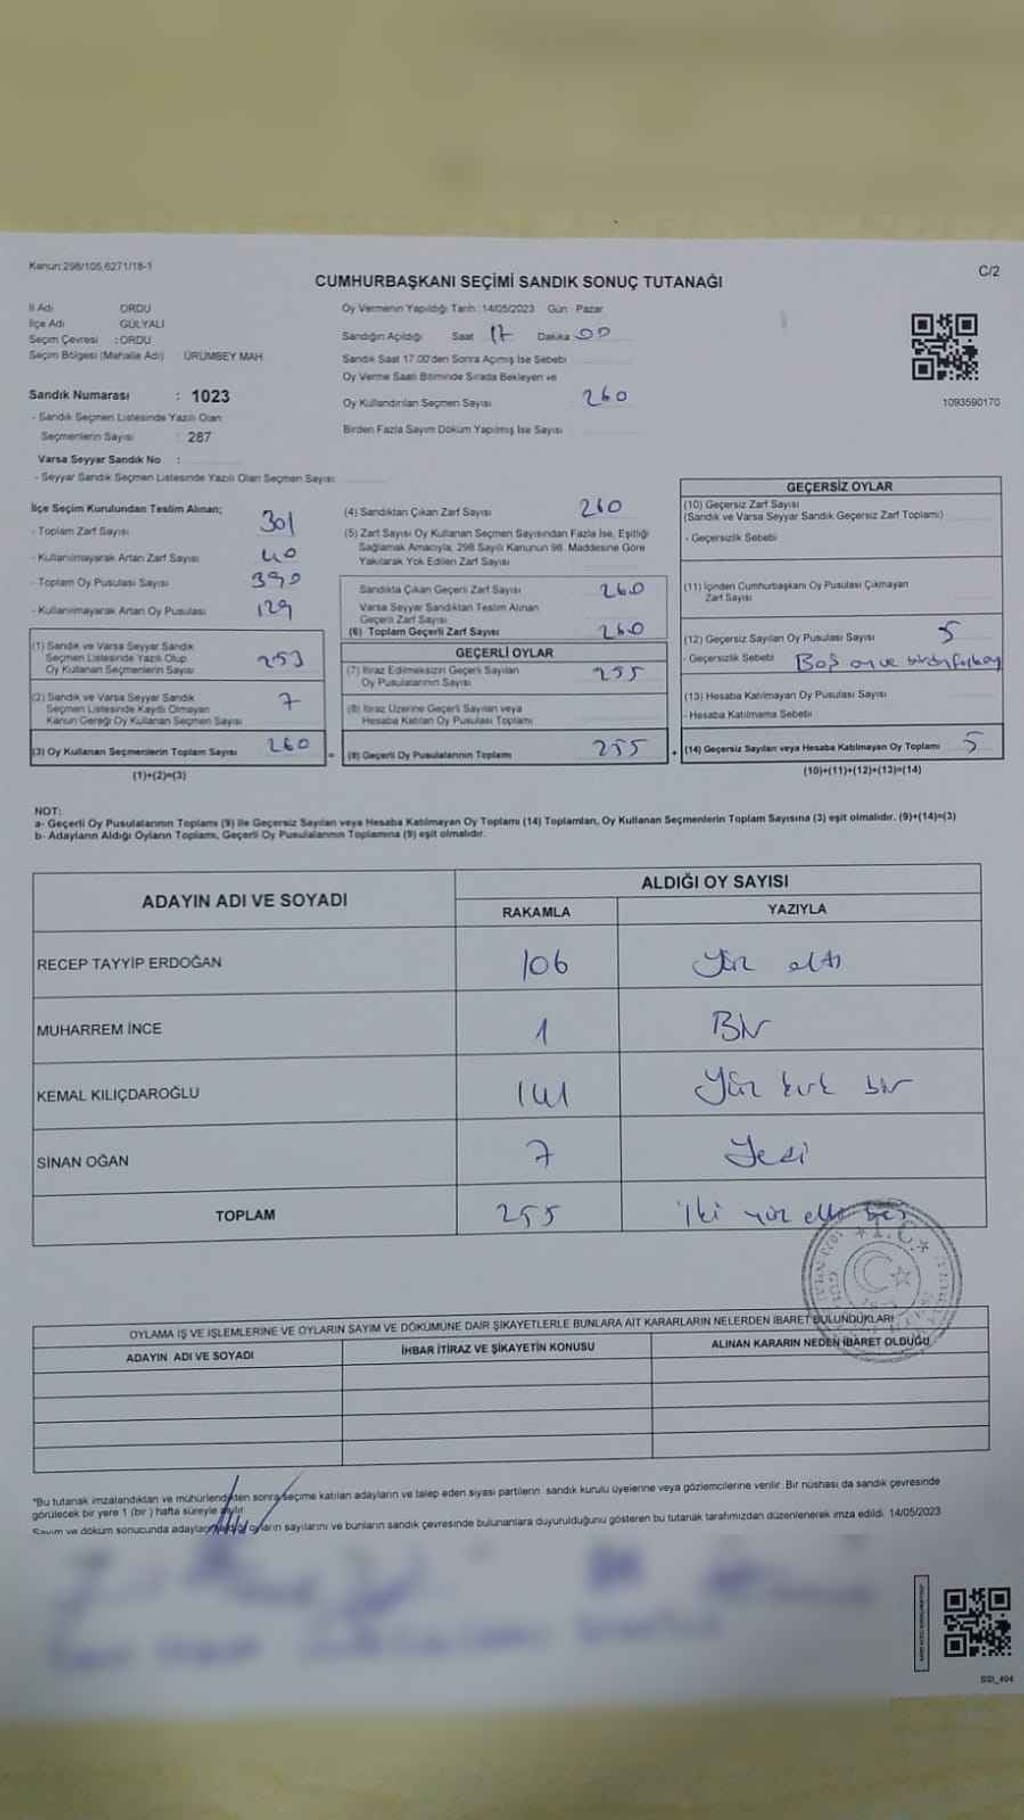 Kanun:298/105,6271/18-1
C/2
CUMHURBAŞKANI SEÇİMİ SANDIK SONUÇ TUTANAĞI
İl Adı ORDU
İlçe Adı GÜLYALI
Seçim Çevresi : ORDU
Seçim Bölgesi (Mahalle Adı) ÜRÜMBEY MAH.
Sandık Numarası : 1023
- Sandık Seçmen Listesinde Yazılı Olan
Seçmenlerin Sayısı : 287
Varsa Seyyar Sandık No :
- Seyyar Sandık Seçmen Listesinde Yazılı Olan Seçmen Sayısı:
Oy Vermenin Yapıldığı Tarih: 14/05/2023 Gün: Pazar
Sandığın Açıldığı Saat 17 Dakika 00
Sandık Saat 17.00'den Sonra Açılmış İse Sebebi
Oy Verme Saati Bitiminde Sırada Bekleyen ve
Oy Kullandırılan Seçmen Sayısı 260
Birden Fazla Sayım Döküm Yapılmış İse Sayısı
1093590170
İlçe Seçim Kurulundan Teslim Alınan;
- Toplam Zarf Sayısı 301
- Kullanılmayarak Artan Zarf Sayısı 40
- Toplam Oy Pusulası Sayısı 390
- Kullanılmayarak Artan Oy Pusulası 129
(1) Sandık ve Varsa Seyyar Sandık
Seçmen Listesinde Yazılı Olup
Oy Kullanan Seçmenlerin Sayısı 253
(2) Sandık ve Varsa Seyyar Sandık
Seçmen Listesinde Kayıtlı Olmayan
Kanun Gereği Oy Kullanan Seçmen Sayısı 7
(3) Oy Kullanan Seçmenlerin Toplam Sayısı 260
(1)+(2)=(3)
(4) Sandıktan Çıkan Zarf Sayısı 260
(5) Zarf Sayısı Oy Kullanan Seçmen Sayısından Fazla İse, Eşitliği
Sağlamak Amacıyla, 298 Sayılı Kanunun 98. Maddesine Göre
Yakılarak Yok Edilen Zarf Sayısı
Sandıkta Çıkan Geçerli Zarf Sayısı 260
Varsa Seyyar Sandıktan Teslim Alınan
Geçerli Zarf Sayısı
(6) Toplam Geçerli Zarf Sayısı 260
GEÇERLİ OYLAR
(7) İtiraz Edilmeksizin Geçerli Sayılan
Oy Pusulalarının Sayısı 255
(8) İtiraz Üzerine Geçerli Sayılan veya
Hesaba Katılan Oy Pusulası Toplamı
(9) Geçerli Oy Pusulalarının Toplamı 255
GEÇERSİZ OYLAR
(10) Geçersiz Zarf Sayısı
(Sandık ve Varsa Seyyar Sandık Geçersiz Zarf Toplamı)
- Geçersizlik Sebebi
(11) İçinden Cumhurbaşkanı Oy Pusulası Çıkmayan
Zarf Sayısı
(12) Geçersiz Sayılan Oy Pusulası Sayısı 5
- Geçersizlik Sebebi Boş oy ve birden fazla oy
(13) Hesaba Katılmayan Oy Pusulası Sayısı
- Hesaba Katılmama Sebebi
(14) Geçersiz Sayılan veya Hesaba Katılmayan Oy Toplamı 5
(10)+(11)+(12)+(13)=(14)
NOT:
a- Geçerli Oy Pusulalarının Toplamı (9) ile Geçersiz Sayılan veya Hesaba Katılmayan Oy Toplamı (14) Toplamları, Oy Kullanan Seçmenlerin Toplam Sayısına (3) eşit olmalıdır. (9)+(14)=(3)
b- Adayların Aldığı Oyların Toplamı, Geçerli Oy Pusulalarının Toplamına (9) eşit olmalıdır.
ADAYIN ADI VE SOYADI ALDIĞI OY SAYISI
RAKAMLA YAZIYLA
RECEP TAYYİP ERDOĞAN 106 Yüz altı
MUHARREM İNCE 1 Bir
KEMAL KILIÇDAROĞLU 141 Yüz kırk bir
SİNAN OĞAN 7 Yedi
TOPLAM 255 İki yüz elli beş
T.C.
OYLAMA İŞ VE İŞLEMLERİNE VE OYLARIN SAYIM VE DÖKÜMÜNE DAİR ŞİKAYETLERLE BUNLARA AİT KARARLARIN NELERDEN İBARET BULUNDUKLARI
ADAYIN ADI VE SOYADI İHBAR İTİRAZ VE ŞİKAYETİN KONUSU ALINAN KARARIN NEDEN İBARET OLDUĞU
*Bu tutanak imzalandıktan ve mühürlendikten sonra seçime katılan adayların ve talep eden siyasi partilerin sandık kurulu üyelerine veya gözlemcilerine verilir. Bir nüshası da sandık çevresinde
görülecek bir yere 1 (bir) hafta süreyle asılır.
Sayım ve döküm sonucunda adayların aldığı oyların sayılarını ve bunların sandık çevresinde bulunanlara duyurulduğunu gösteren bu tutanak tarafımızdan düzenlenerek imza edildi. 14/05/2023